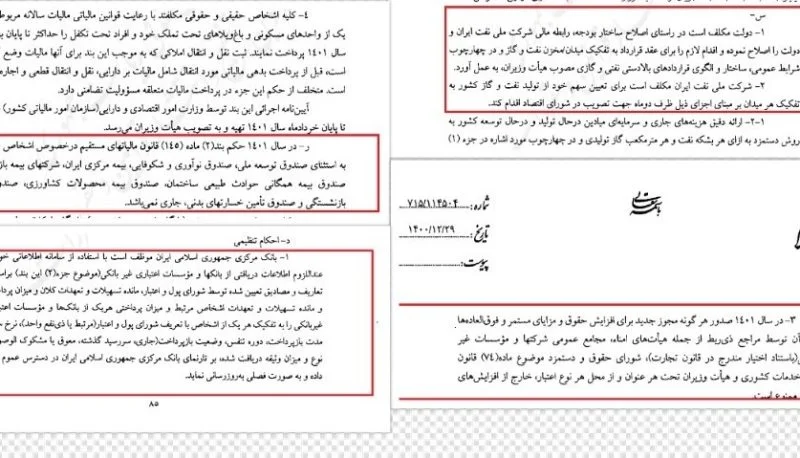 س-
۱- دولت مکلف است در راستای اصلاح ساختار بودجه، رابطه مالی شرکت ملی نفت ایران و
دولت را اصلاح نموده و اقدام لازم را برای عقد قرارداد به تفکیک میدان/مخزن نفت و گاز و در چهارچوب
شرایط عمومی، ساختار و الگوی قراردادهای بالادستی نفتی و گازی مصوب هیأت وزیران، به عمل آورد.
شرکت ملی نفت ایران مکلف است برای تعیین سهم خود از تولید نفت و گاز کشور به
تفکیک هر میدان بر مبنای اجزای ذیل ظرف دوماه جهت تصویب در شورای اقتصاد اقدام کند.
۱-۲- ارائه دقیق هزینه‌های جاری و سرمایه‌ای میادین درحال تولید و درحال توسعه کشور به
روش دستمزد به ازای هر بشکه نفت و هر مترمکعب گاز تولیدی و در چهارچوب مورد اشاره در جزء (۱)
۴- کلیه اشخاص حقیقی و حقوقی مکلفند با رعایت قوانین مالیاتی مالیات سالانه مربوط
یک از واحدهای مسکونی و باغ‌ویلاهای تحت تملک خود و افراد تحت تکفل را حداکثر تا پایان
سال ۱۴۰۱ پرداخت نمایند. ثبت نقل و انتقال املاکی که به موجب این بند برای آنها مالیات وضع
است، قبل از پرداخت بدهی مالیاتی مورد انتقال شامل مالیات بر دارایی، نقل و انتقال قطعی و اجاره
است. متخلف از حکم این جزء در پرداخت مالیات متعلقه مسؤولیت تضامنی دارد.
آیین‌نامه اجرائی این بند توسط وزارت امور اقتصادی و دارایی(سازمان امور مالیاتی کشور)
تا پایان خردادماه سال ۱۴۰۱ تهیه و به تصویب هیأت وزیران می‌رسد.
ر- در سال ۱۴۰۱ حکم بند(۲) ماده (۱۴۵) قانون مالیاتهای مستقیم درخصوص اشخاص
به استثنای صندوق توسعه ملی، صندوق نوآوری و شکوفایی، بیمه مرکزی ایران، شرکتهای بیمه
صندوق بیمه همگانی حوادث طبیعی ساختمان، صندوق بیمه محصولات کشاورزی،
بازنشستگی و صندوق تأمین خسارتهای بدنی، جاری نمی‌باشد.
شماره: ۷۱۵/۱۱۴۵۰۴
تاریخ: ۱۴۰۰/۱۲/۲۹
پیوست:
باسمه تعالی
د- احکام تنظیمی
۱- بانک مرکزی جمهوری اسلامی ایران موظف است با استفاده از سامانه اطلاعاتی
عنداللزوم اطلاعات دریافتی از بانکها و مؤسسات اعتباری غیر بانکی(موضوع جزء(۲) این بند)
تعاریف و مصادیق تعیین شده توسط شورای پول و اعتبار، مانده تسهیلات و تعهدات کلان و میزان
و مانده تسهیلات و تعهدات اشخاص مرتبط و میزان پرداختی هریک از بانک‌ها و مؤسسات
غیربانکی را به تفکیک هر یک از اشخاص با تعریف شورای پول و اعتبار(مرتبط یا ذی‌نفع واحد)، نرخ
مدت بازپرداخت، دوره تنفس، وضعیت بازپرداخت(جاری، سررسید گذشته، معوق یا مشکوک
نوع و میزان وثیقه دریافت شده، بر تارنمای بانک مرکزی جمهوری اسلامی ایران در دسترس عموم
داده و به صورت فصلی به‌روزرسانی نماید.
۸۵
۳- در سال ۱۴۰۱ صدور هر گونه مجوز جدید برای افزایش حقوق و مزایای مستمر و فوق‌العاده‌ها
آن توسط مراجع ذی‌ربط از جمله هیأت‌های امناء، مجامع عمومی شرکتها و مؤسسات غیر
(باستناد اختیار مندرج در قانون تجارت)، شورای حقوق و دستمزد موضوع ماده(۷۴) قانون
خدمات کشوری و هیأت وزیران تحت هر عنوان و از محل هر نوع اعتبار، خارج از افزایش‌های
ممنوع است.